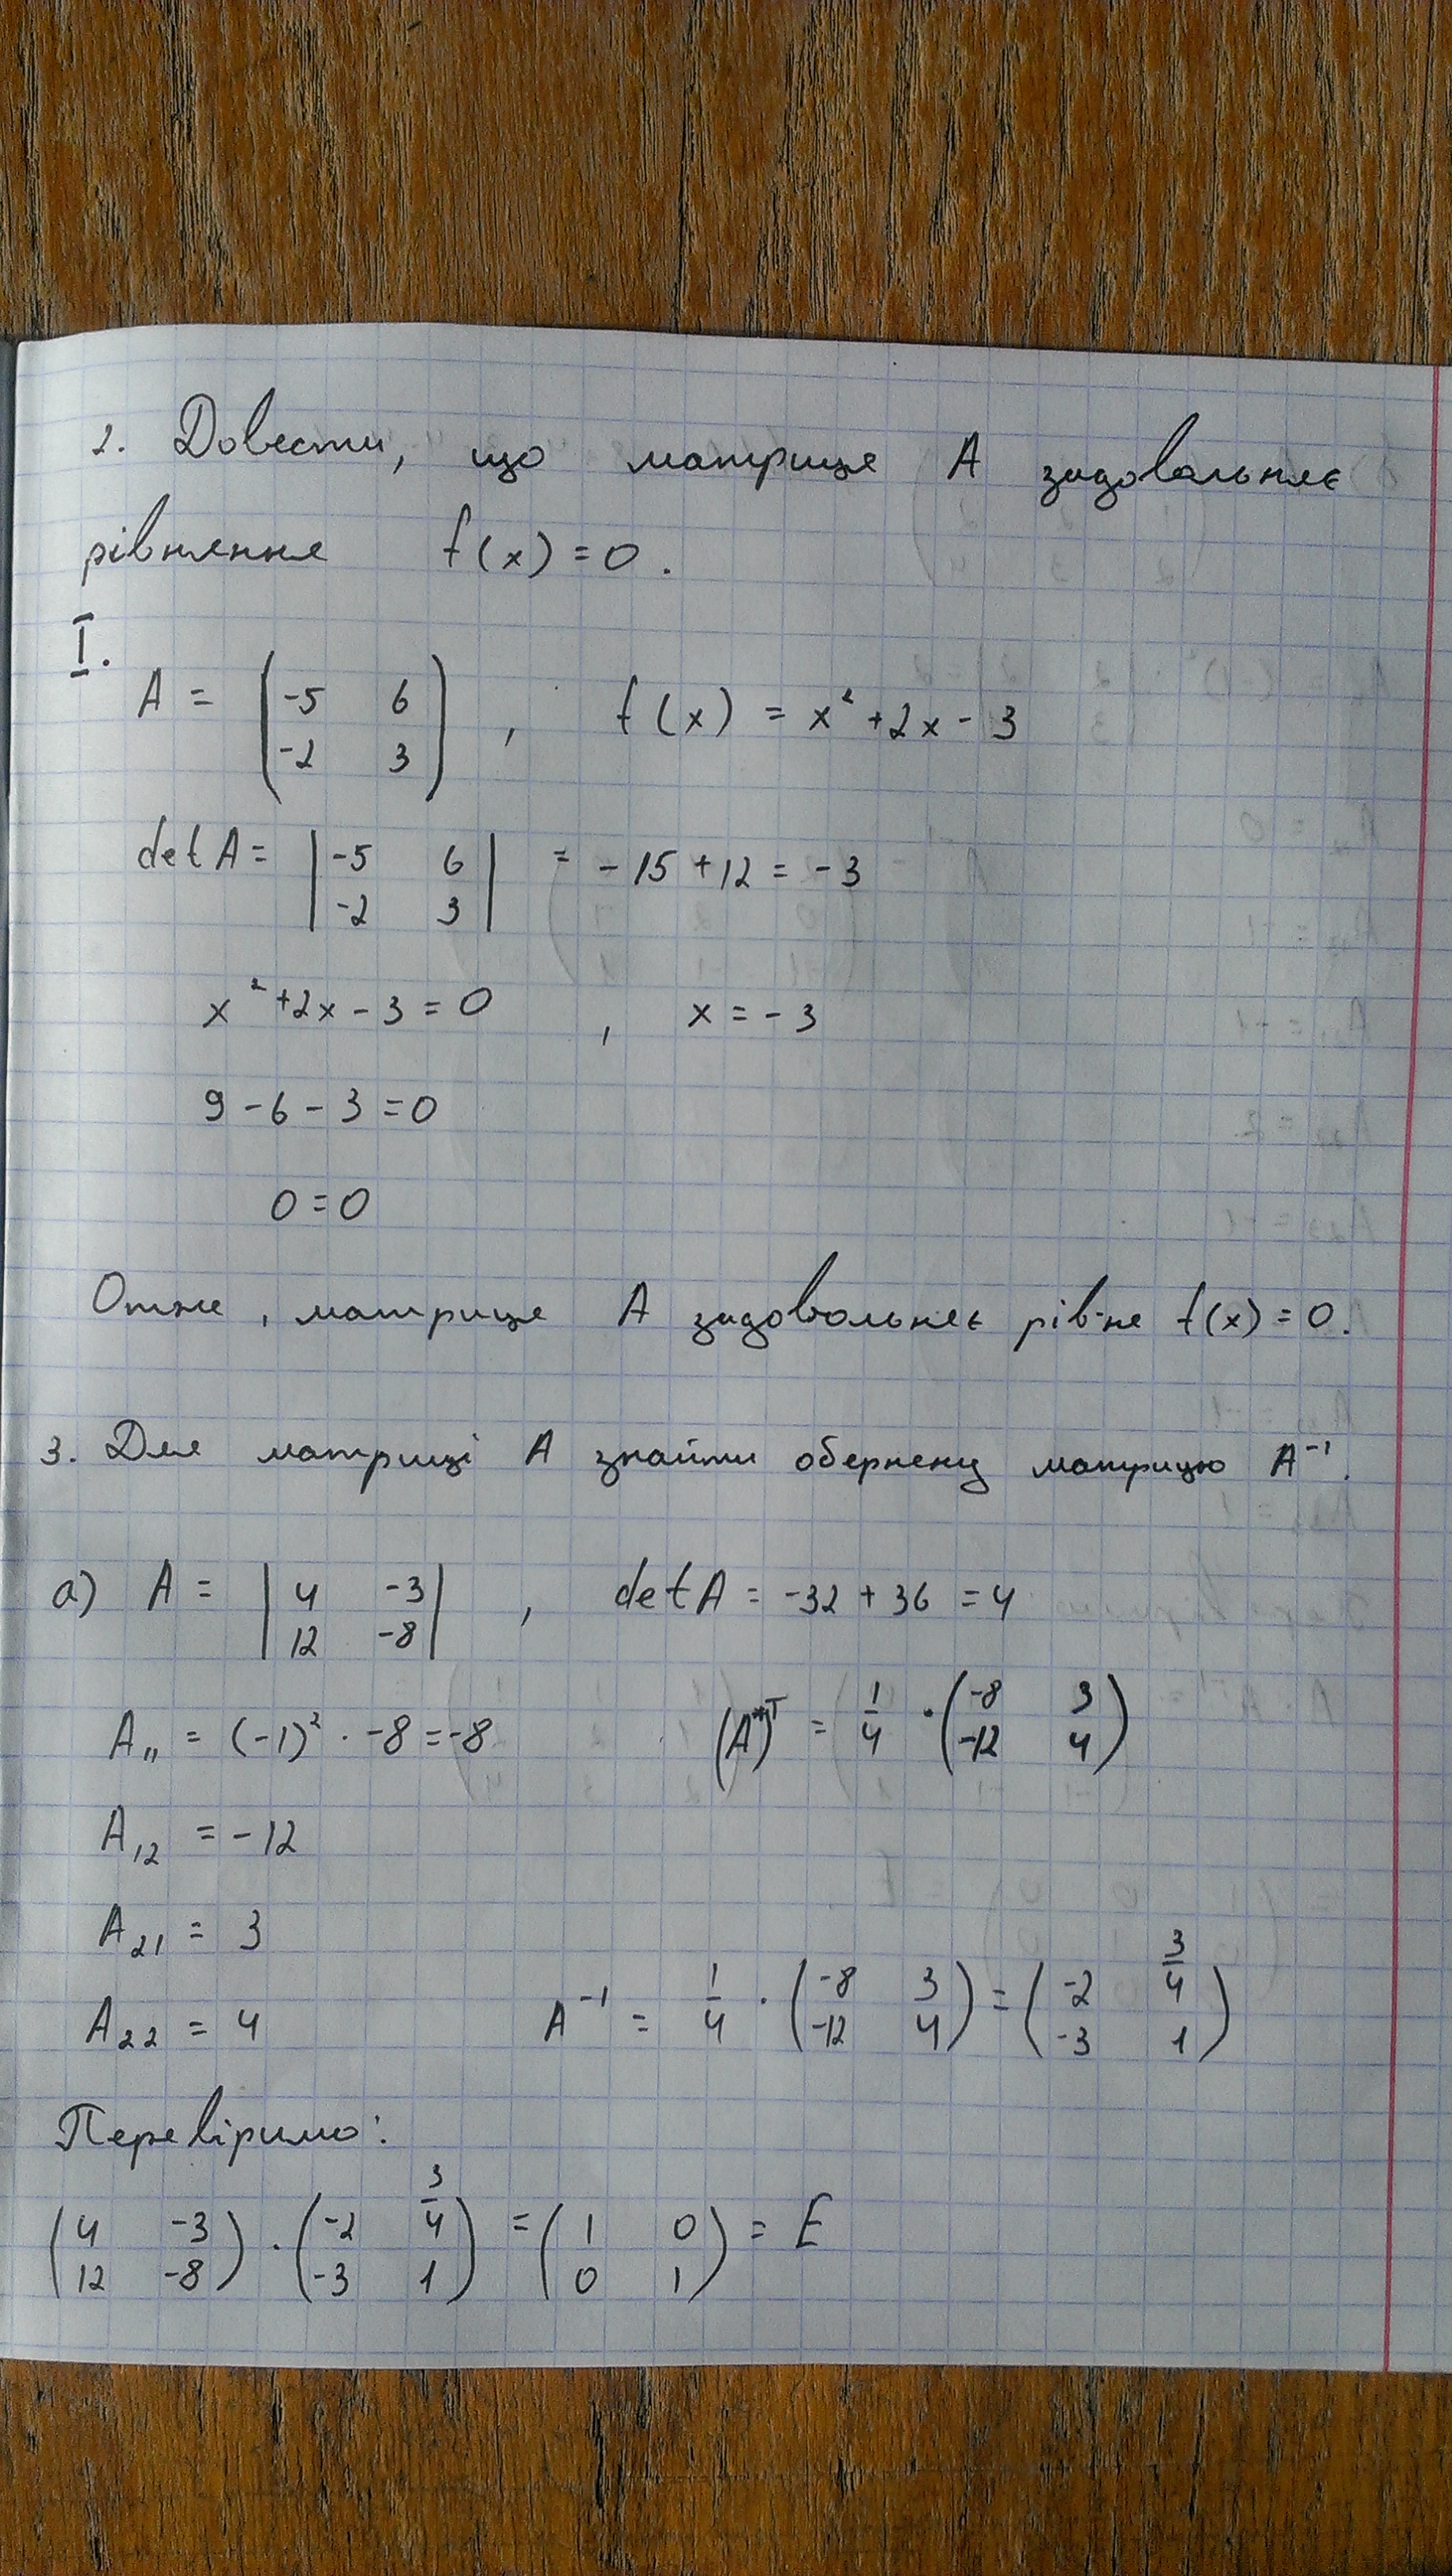 2. Довести, що матриця A задовольняє
рівняння f(x) = 0.
I.
A = (-5 6; -2 3), f(x) = x² + 2x - 3
det A = |-5 6; -2 3| = -15 + 12 = -3
x² + 2x - 3 = 0, x = -3
9 - 6 - 3 = 0
0 = 0
Отже, матриця A задовольняє рів-ня f(x) = 0.
3. Для матриці A знайти обернену матрицю A⁻¹.
a) A = |4 -3; 12 -8|, det A = -32 + 36 = 4
A₁₁ = (-1)² · -8 = -8 (A*)ᵀ = 1/4 · (-8 3; -12 4)
A₁₂ = -12
A₂₁ = 3
A₂₂ = 4 A⁻¹ = 1/4 · (-8 3; -12 4) = (-2 3/4; -3 1)
Перевіримо:
(4 -3; 12 -8) · (-2 3/4; -3 1) = (1 0; 0 1) = E